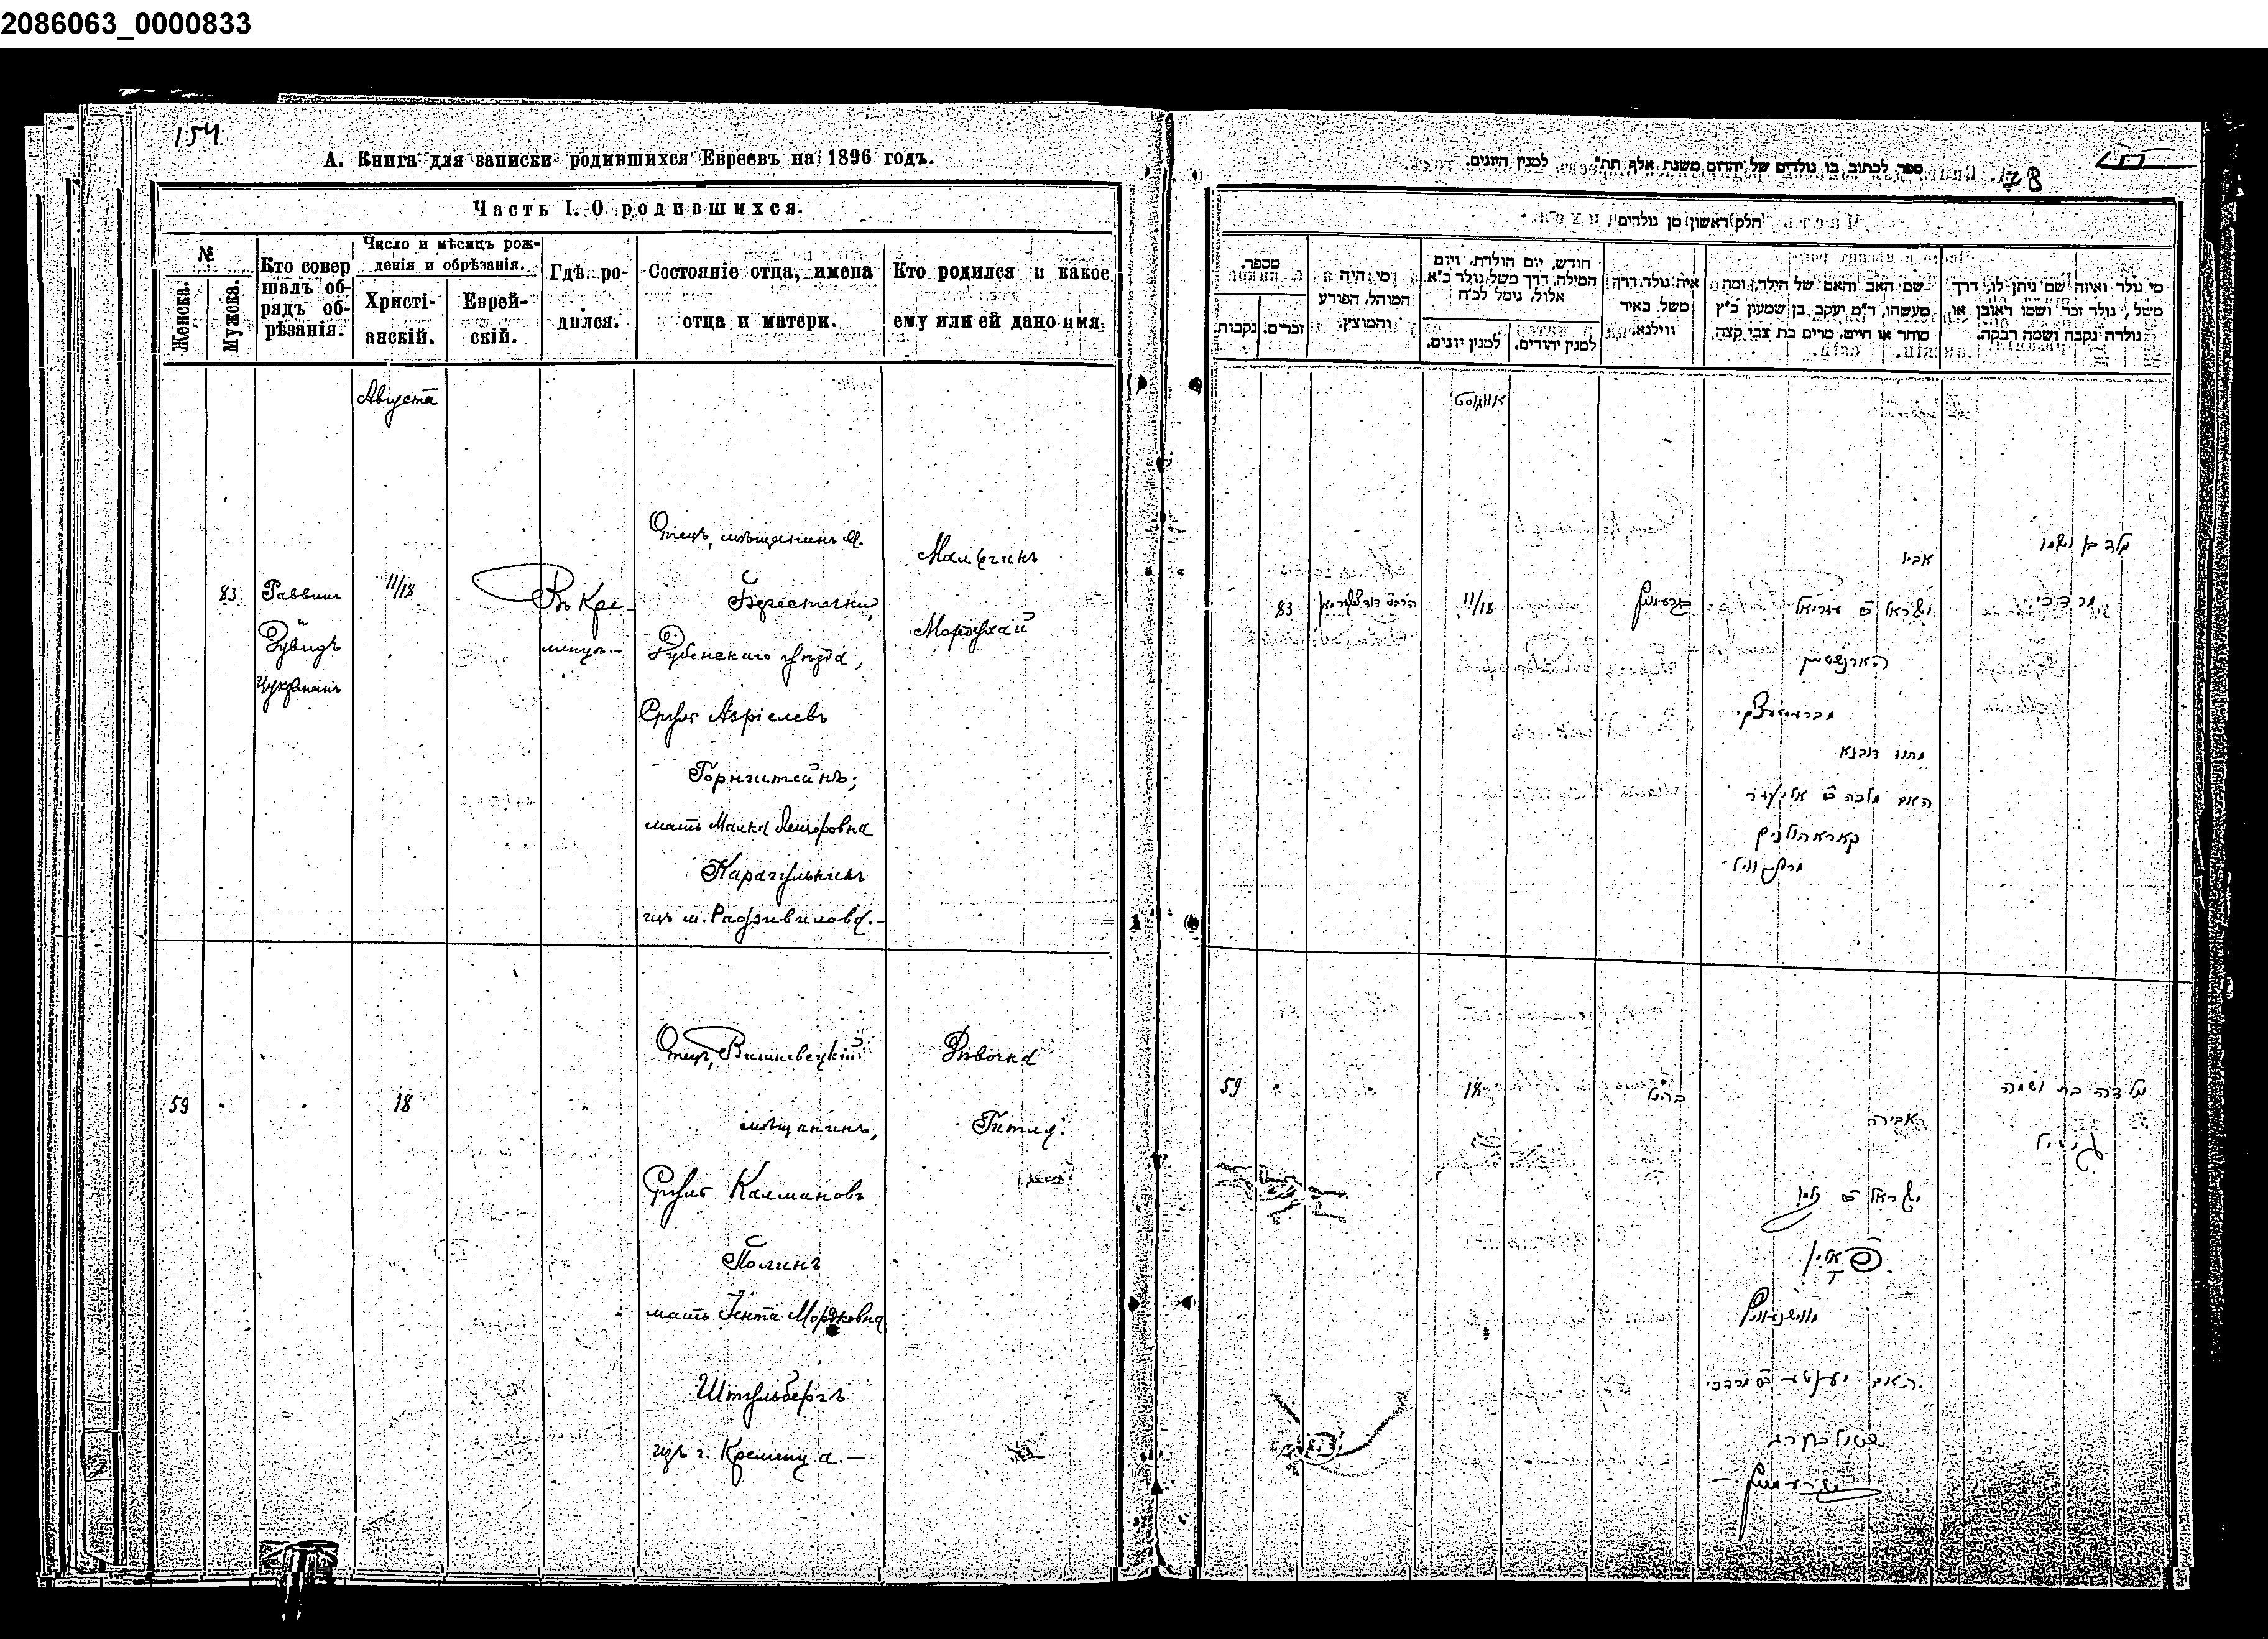 2086063_0000833
154
А. Книга для записки родившихся Евреевъ на 1896 годъ.
Часть I. О родившихся.
№
Женска.
Мужска.
Кто совер
шалъ об-
рядъ об-
рѣзанія.
Число и мѣсяцъ рож-
денія и обрѣзанія.
Христі-
анскій.
Еврей-
скій.
Гдѣ ро-
дился.
Состояніе отца, имена
отца и матери.
Кто родился и какое
ему или ей дано имя.
Августа
83
Раввинъ
и
Дувидъ
11/18
Въ Кре-
менцѣ.—
Отецъ, мѣщанинъ м.
Берестечки,
Дубенскаго уѣзда,
Сруль Азріелевъ
Горнштейнъ;
мать Малка Лейзоровна
Карагульникъ
изъ м. Радзивилова.—
Мальчикъ
Мордухай
59
18
Отецъ, Вишневецкій
мѣщанинъ,
Сруль Калмановъ
Полинъ
мать Іента Мордковна
Штульбергъ
изъ г. Кременца.—
Дѣвочка
Гитля.
78
ספר לכתוב בו נולדים של יהודים משנת אלף תת" למנין היונים.
חלק ראשון מן נולדים
מספר.
זכרים.
נקבות.
מי היה
המוהל, הפורע
והמוצץ.
חודש, יום הולדת, ויום
המילה, דרך משל נולד כ"א
אלול, נימל לכ"ח
למנין יונים.
למנין יהודים.
איה נולד, דרך
משל באיר
ווילנא.
שם האב והאם של הילד, ומה
מעשהו, ד"מ יעקב בן שמעון כ"ץ
סוחר או חייט, מרים בת צבי קצה
מי נולד ואיזה שם ניתן לו, דרך
משל, נולד זכר ושמו ראובן או
נולדה נקבה ושמה רבקה.
אווגוסט
83
11/18
אביו
ישראל ב"ר עזריאל
הארנשטיין
מחוז דובנא
האם מלכה ב"ר אליעזר
נולד בן ושמו
מרדכי
59
18
כנ"ל
אביה
ישראל ב"ר קלמן
פאלין
האם יענטע ב"ר מרדכי
שטולבערג
נולדה בת ושמה
גיטיל